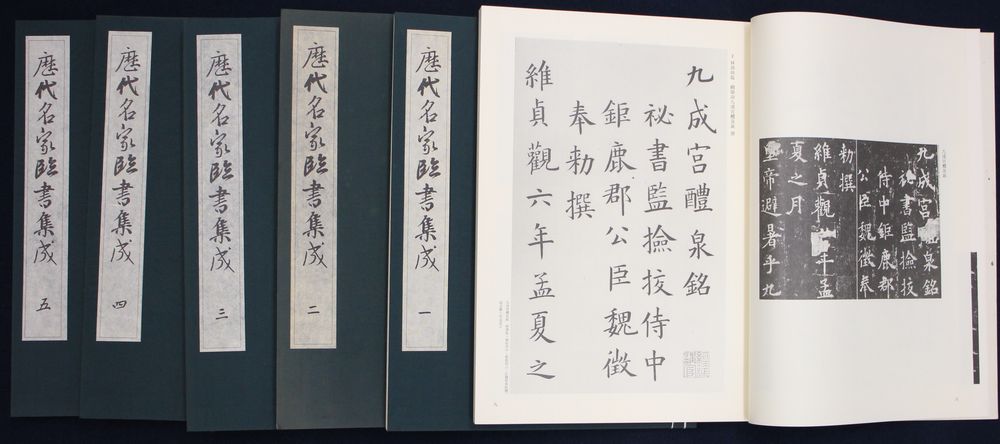 歷代名家臨書集成
五
歷代名家臨書集成
四
歷代名家臨書集成
三
歷代名家臨書集成
二
歷代名家臨書集成
一
九成宮醴泉銘
祕書監撿挍侍中
鉅鹿郡公臣魏徵
奉勅撰
維貞觀六年孟夏之
九成宮醴泉銘
祕書監撿挍
侍中鉅鹿郡
公臣魏徵奉
勅撰
維貞觀年孟
夏之月
皇帝避暑乎九